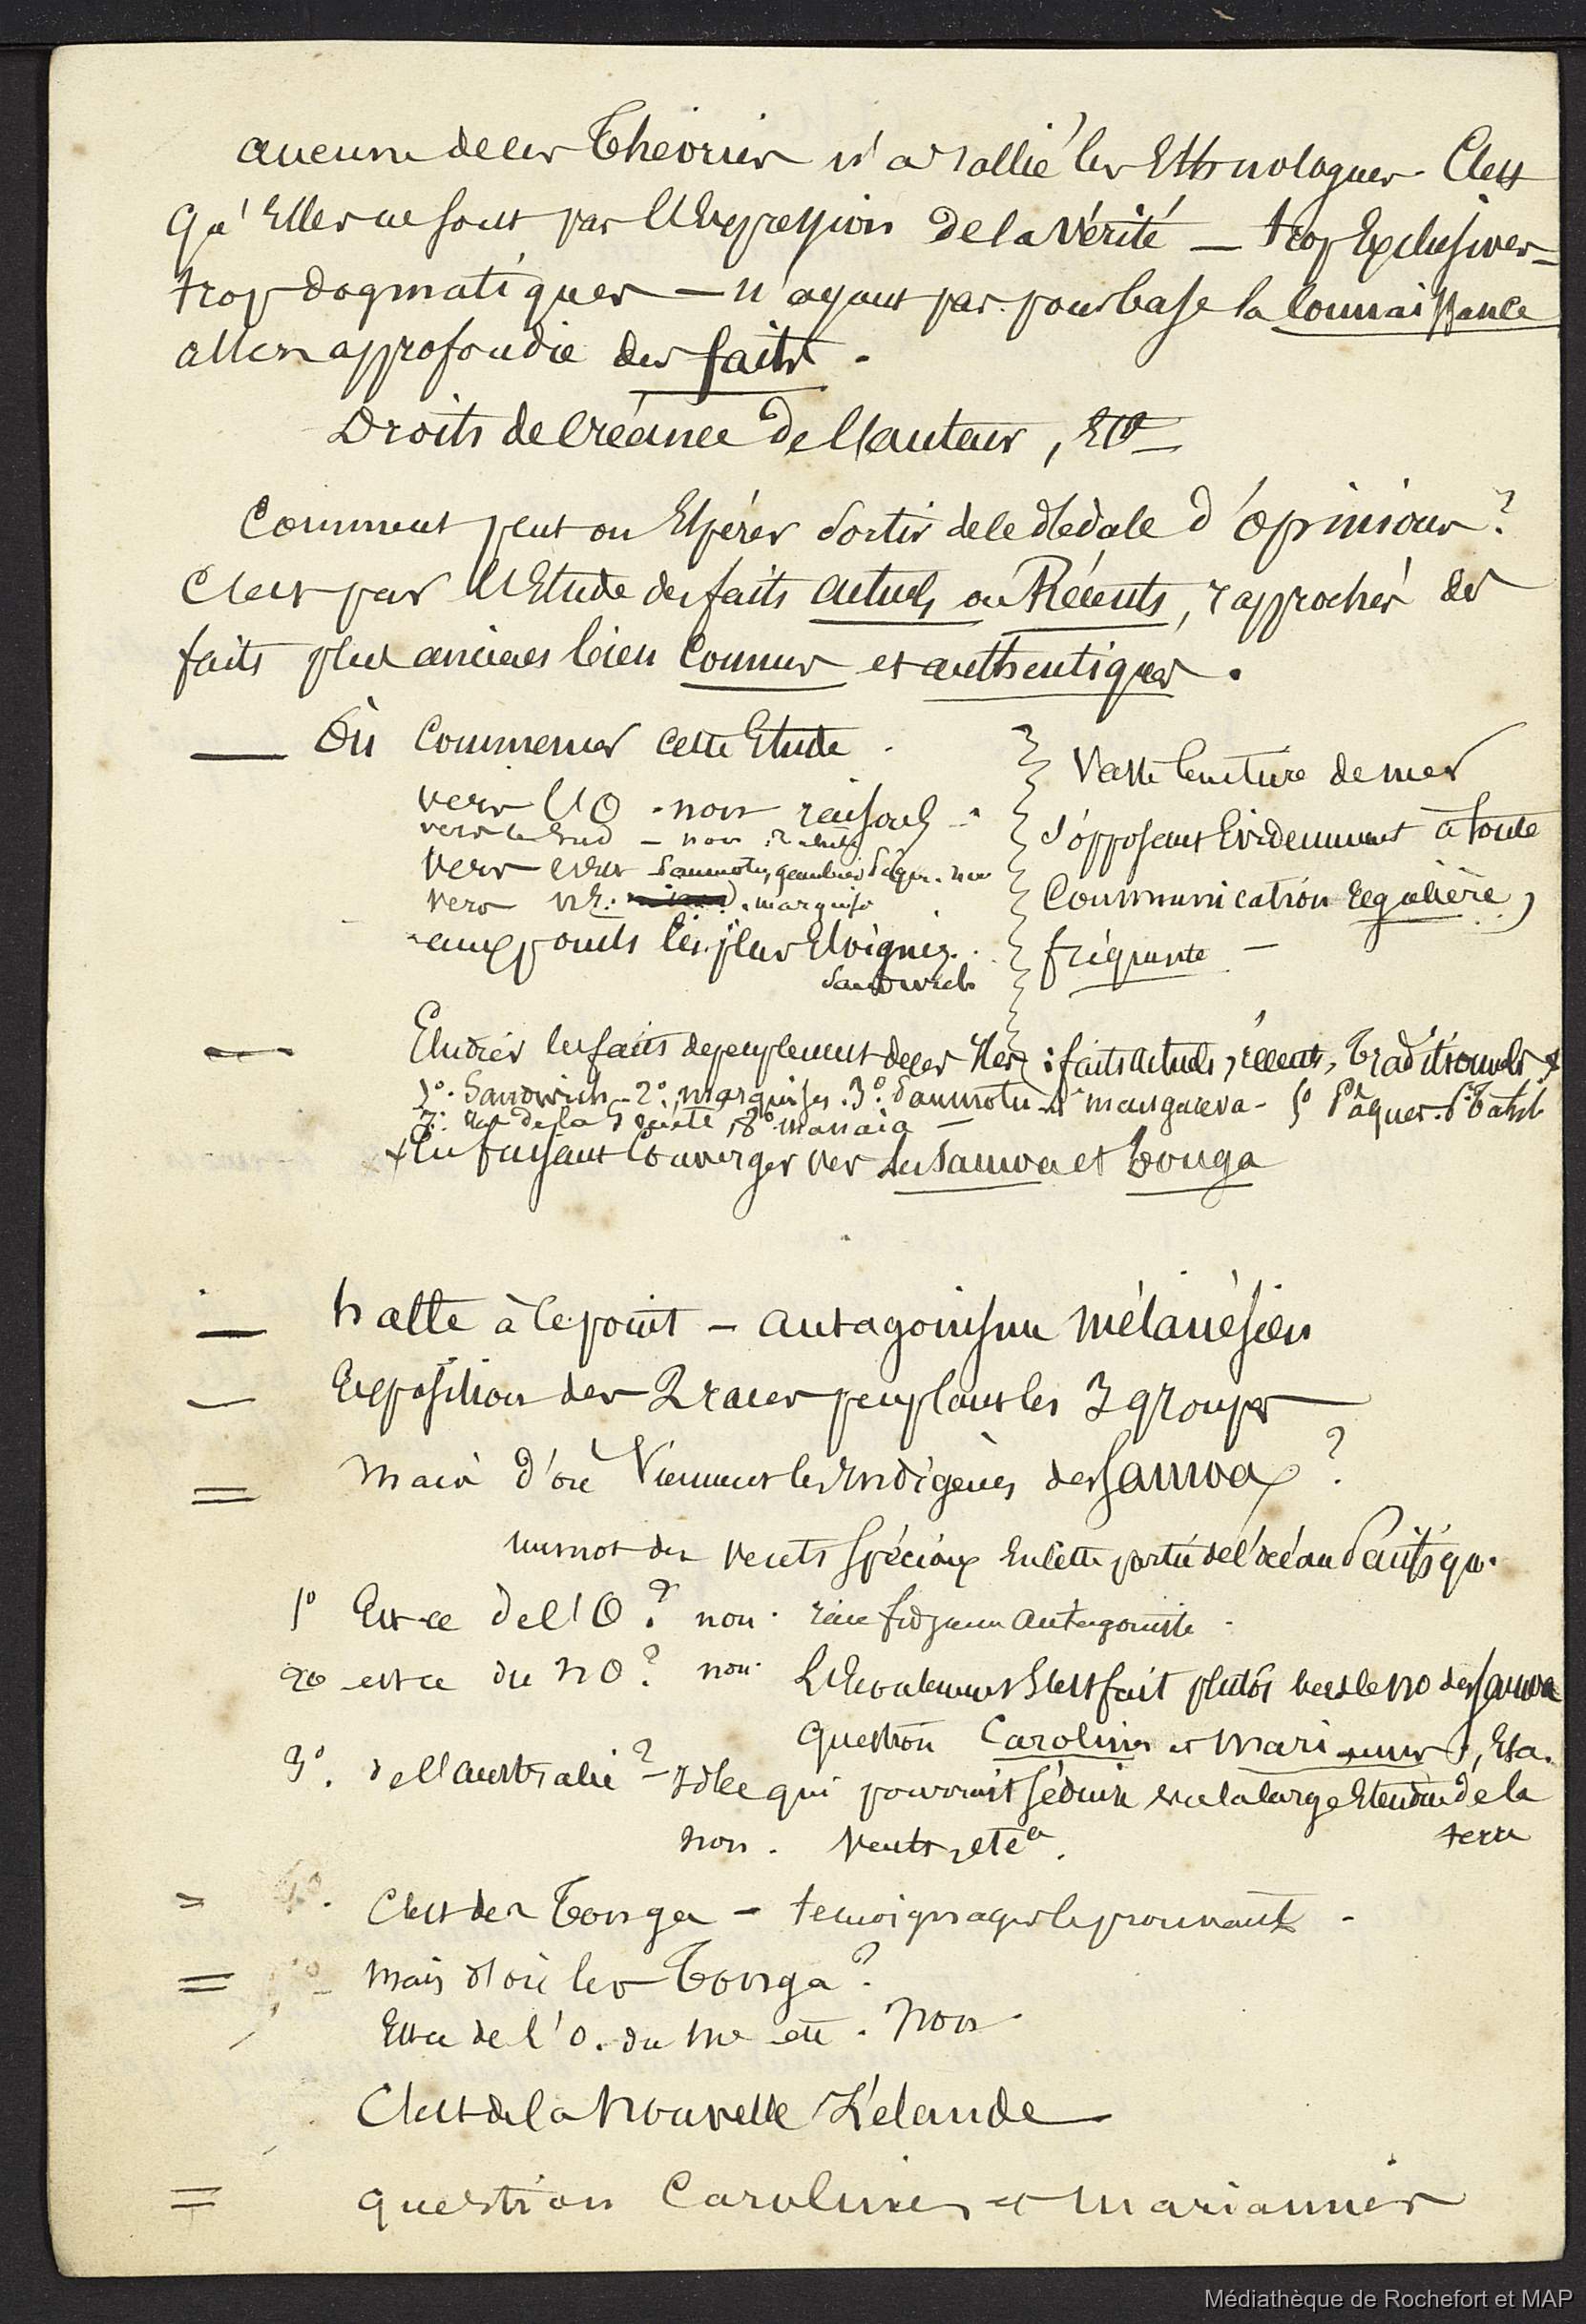 aucune de ces Théories n'a rallié les Ethnologues. C'est
qu'Elles ne sont pas l'Expression de la Vérité — trop Exclusives —
trop dogmatiques — n'ayant pas pour base la connaissance
assez approfondie des faits.
Droits de créance de l'auteur, Etc
Comment peut on Espérer sortir de ce dédale d'opinions ?
C'est par l'Etude des faits actuels ou Récents, rapprochés des
faits plus anciens bien connus et authentiques.
— Où commencer cette Etude.
vers l'O - non raisons
vers le sud - non
vers l'Est Paumotu, gambier Pâques. non
vers NE. marquises
aux points les plus Eloignés.
Sandwich
Vaste ceinture de mer
s'opposant Evidemment à toute
Communication régulière,
fréquente —
— Etudier les faits de peuplement de ces Iles : faits actuels, récents, Traditionnels +
1°. Sandwich - 2°. marquises. 3°. Paumotu - 4° mangareva - 5° Pâques. 6° Tahiti
7°. Iles de la Société, 8° manaia —
+ En faisant Converger vers les Samoa et Tonga
— halte à ce point — antagonisme mélanésien
— Exposition des 2 races peuplant les 3 groupes —
= Mais d'où Viennent les Indigènes des Samoa ?
un mot des vents spéciaux En cette partie de l'océan Pacifique.
1° Est-ce de l'O ? non. race fidjienne antagoniste.
2o est-ce du NO ? non. L'Evènement s'est fait plutôt vers le NO des Samoa
question Carolines et Mariannes, Eta.
3°. de l'australie ? — Idée qui pourrait séduire vu la large Etendue de la
terre
non. Vents, etca.
= 4°. C'est des Tonga — temoignages le prouvant —
= 5° - mais d'où les Tonga ?
Est ce de l'O. du etc. Non
C'est de la Nouvelle Zélande
= question Carolines et mariannes
Médiathèque de Rochefort et MAP